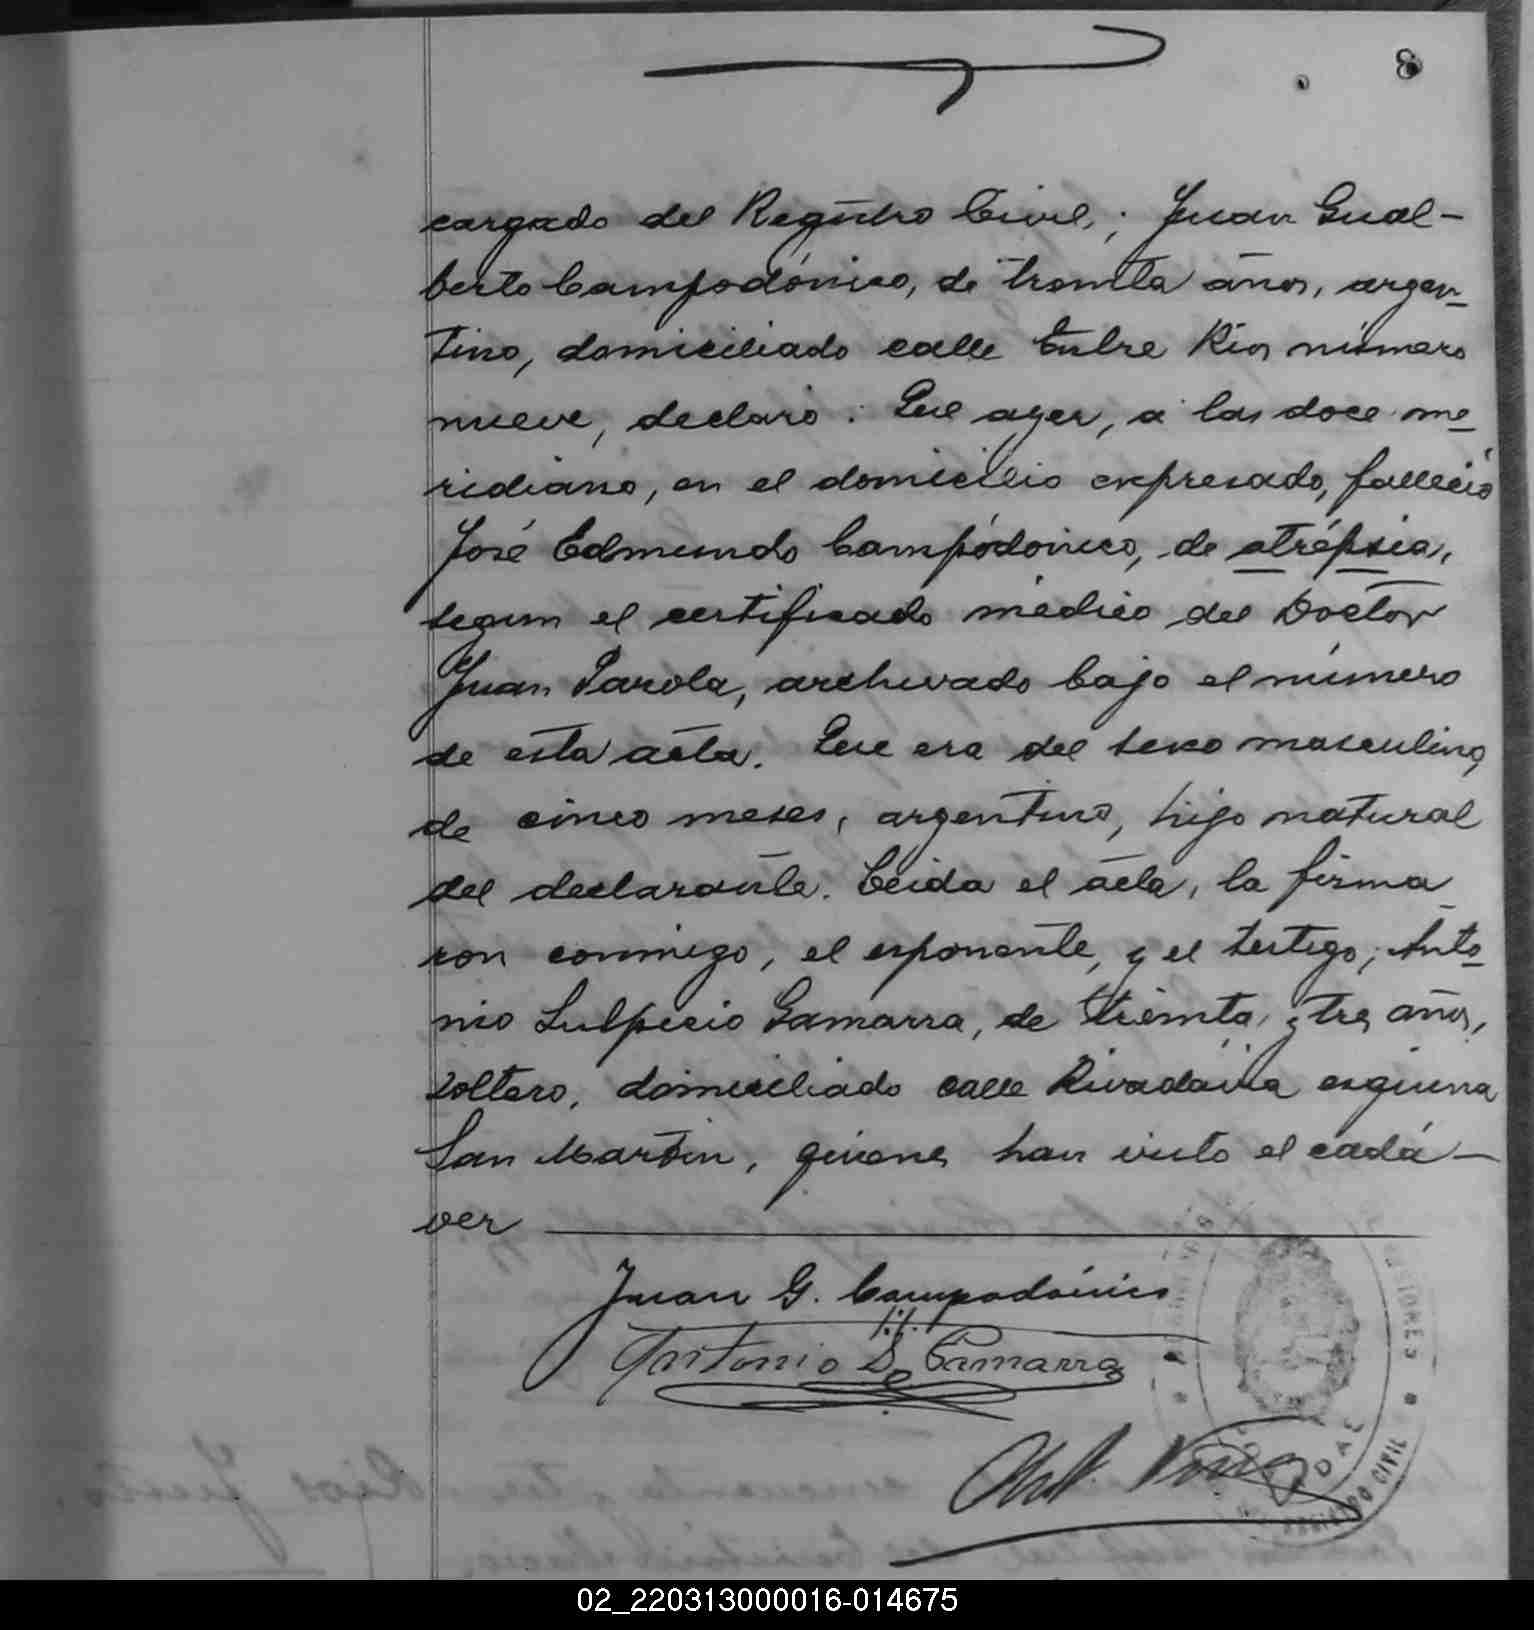 8
cargado del Registro Civil, ; Juan Gual-
berto Campodónico, de treinta años, argen-
tino, domiciliado calle Entre Rios número
nueve, declaró : Que ayer, á las doce me-
ridiano, en el domicilio expresado, falleció
José Edmundo Campódonico, de atrépsia,
segun el certificado médico del Doctor
Juan Parola, archivado bajo el número
de esta acta. Que era del sexo masculino,
de cinco meses, argentino, hijo natural
del declarante. Leida el acta, la firma
ron conmigo, el esponente, y el testigo, Anto-
nio Sulpicio Gamarra, de treinta y tres años,
soltero, domiciliado calle Rivadavia esquina
San Martin, quienes han visto el cadá-
ver
Juan G. Campodónico
Antonio S. Gamarra
REGISTRO CIVIL
02_220313000016-014675